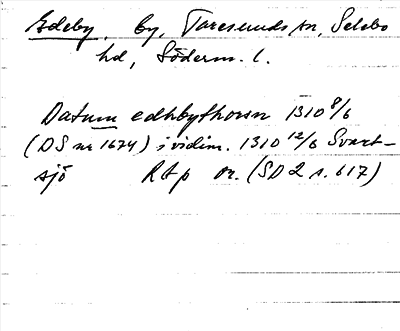 Edeby, by, Toresunds sn, Selebo
hd, Söderm. l.
Datum edhbythorn 1310 8/6
(DS nr 1674) i vidim. 1310 12/6 Svart-
sjö RAp or. (SD 2 s. 617)